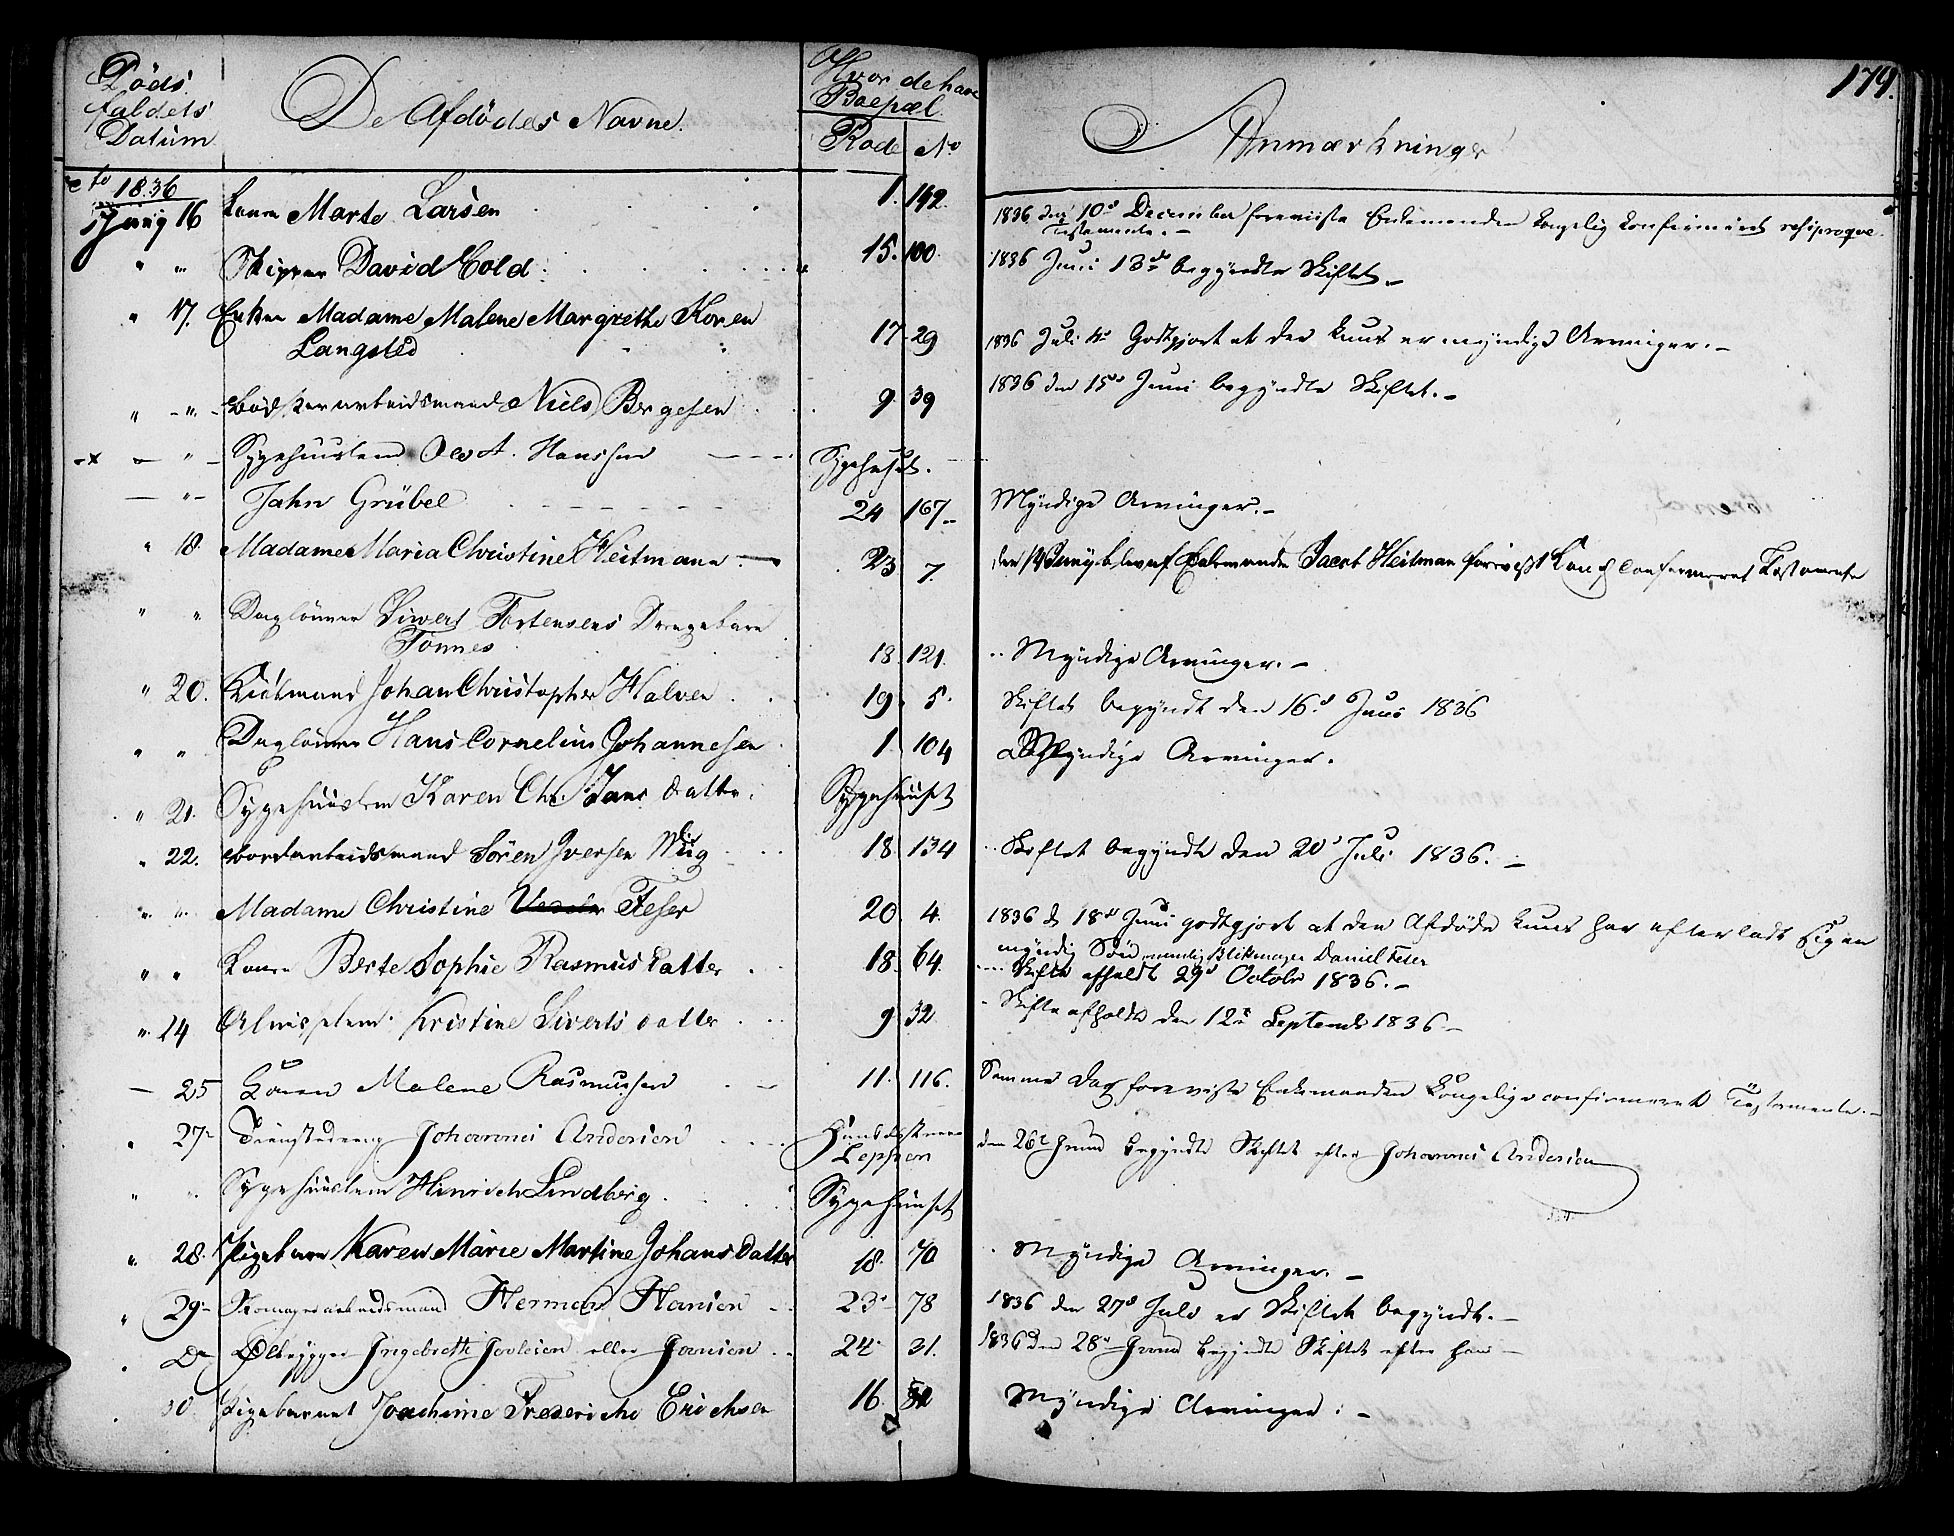 174.
Døds
faldets
Datum
De Afdødes Navne.
Hvor de have
Boepæl.
Rode No
Anmærkninger
1836
Juny 16 Konen Marte Larsen 1. 142. 1836 den 10de December foreviiste Enkemanden kongelig konfirmeret resiproque
Testamente. -
" " Skipper David Cold 15. 100. 1836 Juni 13de begyndte Skiftet. -
" 17. Enken Madame Malene Margrethe Koren
Langsted 17 29 1836 Juli 4 Godtgjort at der kuns er myndige Arvinger. -
" " Bødkerarbeidsmand Niels Bergesen 9. 39 1836 den 15de Juni begyndte Skiftet. -
" Sygehuuslem Hanssen Sygehuset.
" Jahn Grübel 24 167 Myndige Arvinger. -
" 18. Madame Maria Christine Heitmann 23 7. den 14 Juny blev af Enkemanden Jacob Heitman foreviist Kongl confirmeret Testamente
" " Daglønner Siwert Tortensens Drengebarn
Tønnes 18. 121. Myndige Arvinger. -
" 20. Johan Christopher Halven 19. 5. Skiftet begyndt den 16.d Juni 1836
" " Daglønner Hans Cornelius Johannesen 1. 104 Myndige Arvinger.
" 21. Sygehuuslem Karen Chr. Jans datter. Sygehuuset
" 22. Søren Iversen Wiig 18. 134 Skiftet begyndte den 20d Juli 1836. -
" " Madame Christine Feser 20. 4. 1836 d 18de Juni godtgjort at den Afdøde kuns har efterladt sig en
myndig Søn nemlig Blikmager Daniel Feser
" " Konen Berte Sophie Rasmus Datter 18. 64. Skifte afholdt 29d Octobr 1836. -
" 24 Almislem Kristine Siverts datter 9 32. Skifte afholdt den 12te Septembr 1836 -
25 Konen Malene Rasmussen 11. 116. Samme Dag foreviste Enkemanden Kongelige confirmeret Testamente. -
" 27 Tienstedreng Johannes Andersen
Leppen den 26t Juni begyndte Skiftet efter Johannes Andersen
" " Sygehuuslem Hinrich Lindberg. Sygehuuset
" 28. Pigebarn Karen Marie Martine Johans Datter 18. 70 Myndige Arvinger. -
" 29 Skomagerarbeidsmand Herman Hansen 23 78 1836 den 27de Juli er Skiftet begyndt. -
Do Ølbrygger Ingebreth Joelsen eller Jonsen 24 31. 1836 den 28 Juni begyndte Skiftet efter ham -
30. Pigebarnet Joachime Frederiche Erichsen 16. Myndige Arvinger. -